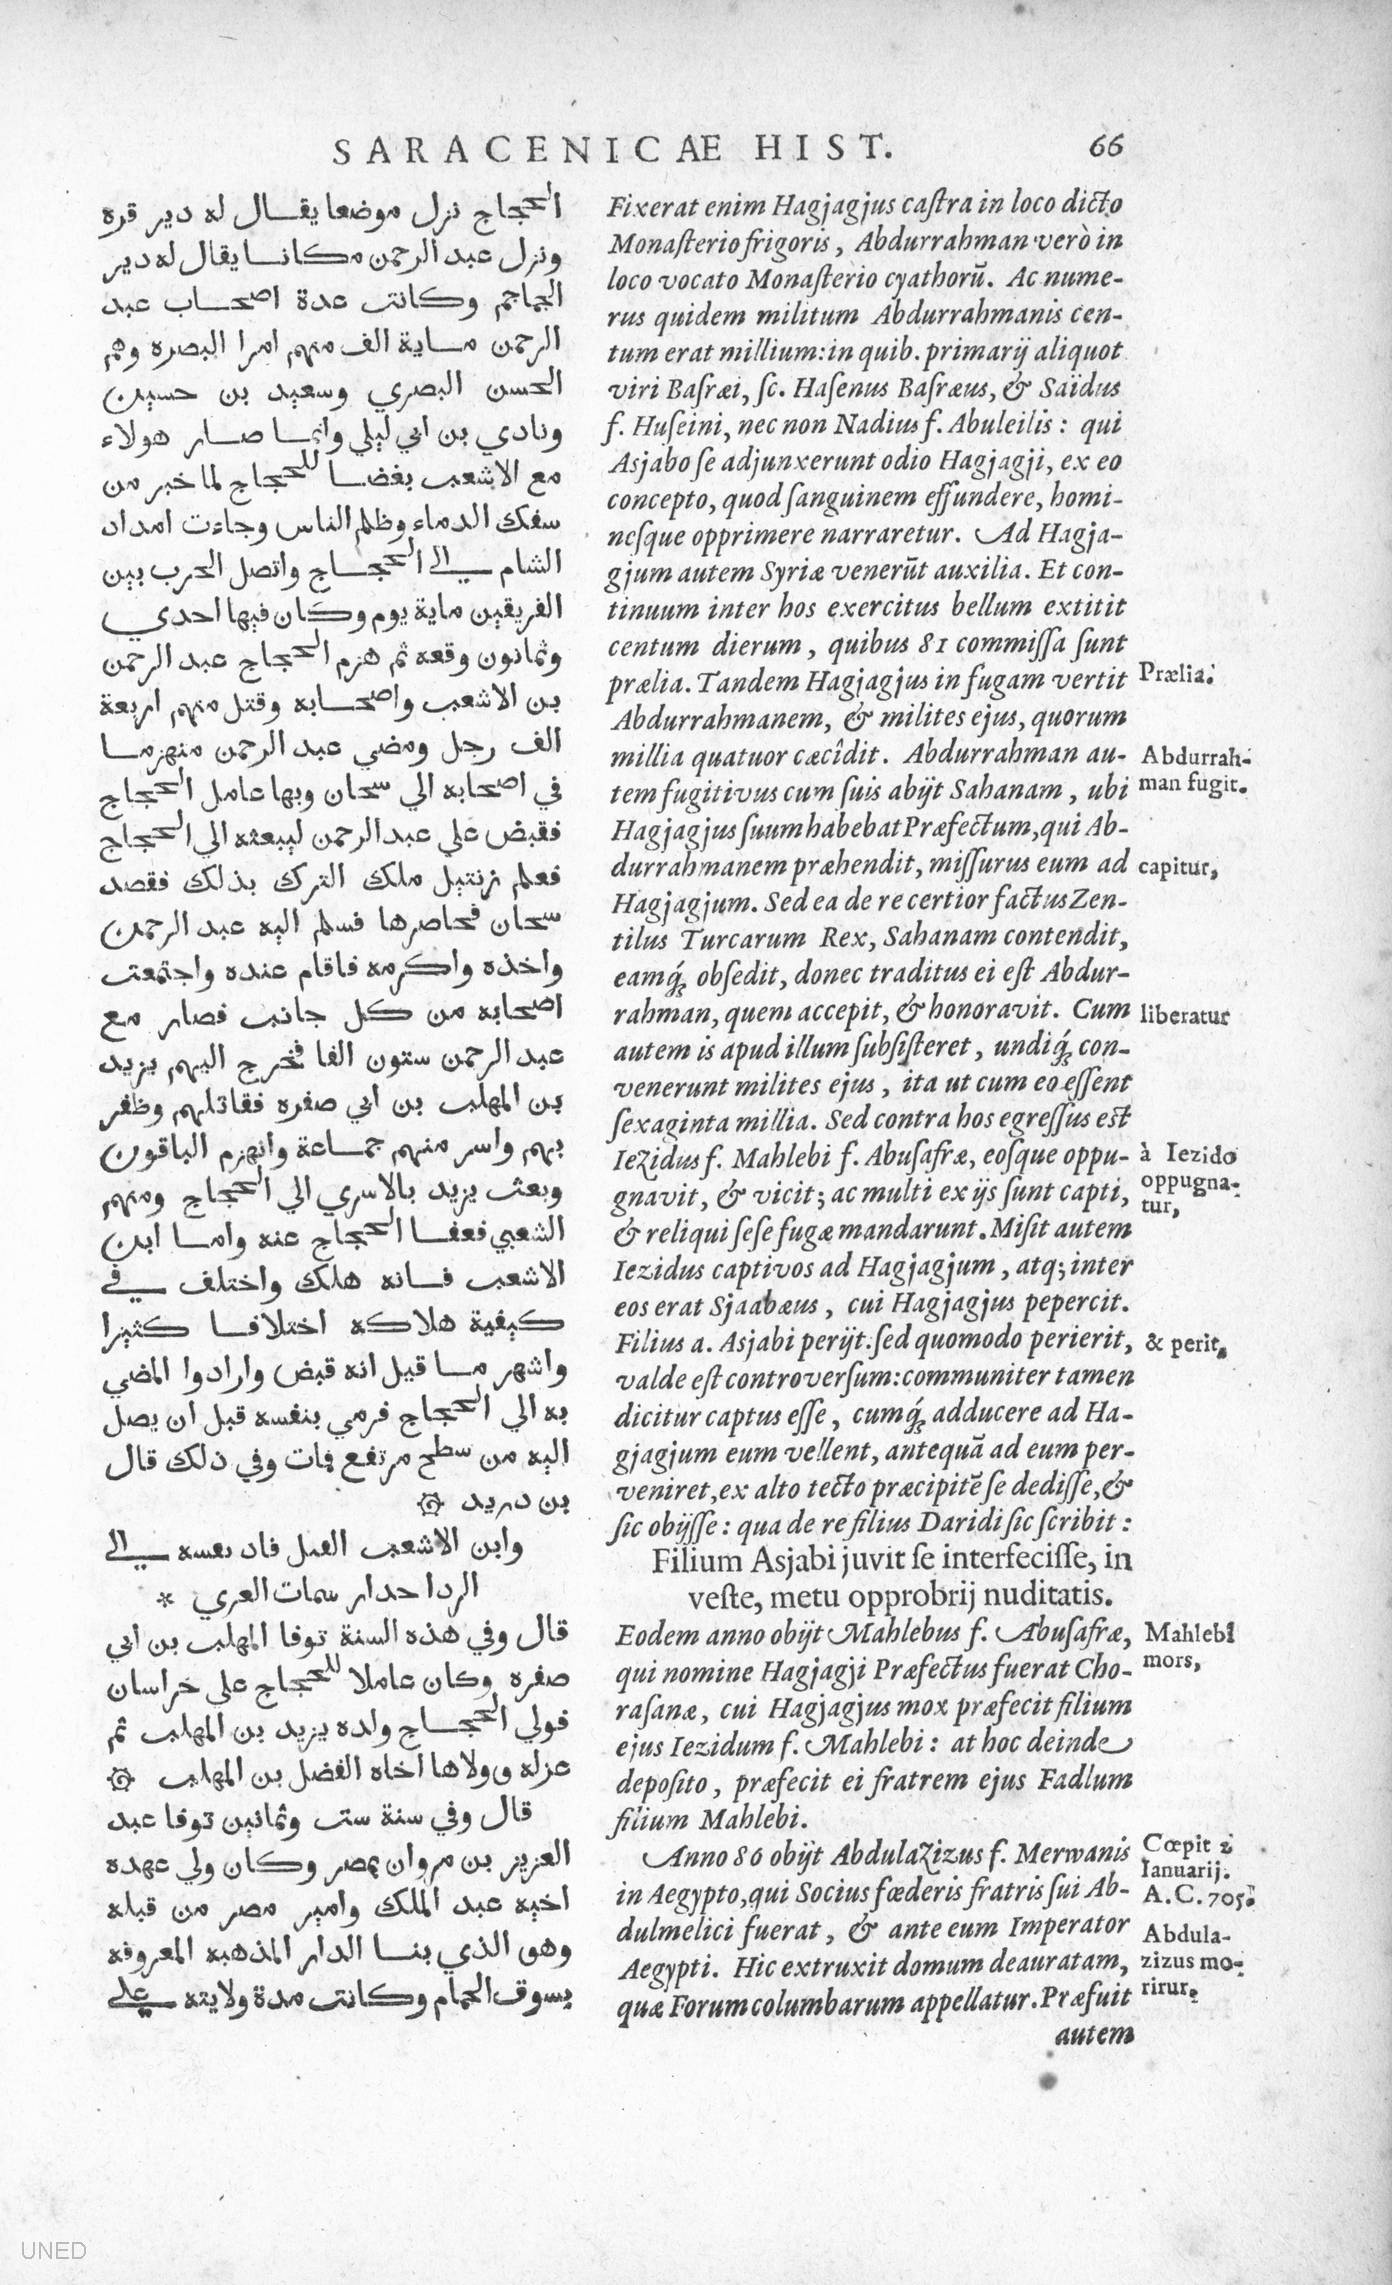 SARACENICÆ HIST. 66
الحجاج نزل موضعا يقال له دير قره
ونزل عبد الرحمن مكانا يقال له دير
الجماجم وكانت عدة اصحاب عبد
الرحمن ماية الف منهم امرا البصره وهم
الحسن البصري وسعيد بن حسين
ونادي بن ابي ليلي وانما صار هولاء
مع الاشعب بغضا للحجاج لما خبر من
سفك الدماء وظلم الناس وجاءت امداد
الشام الي الحجاج واتصل الحرب بين
الفريقين ماية يوم وكان فيها احدي
وثمانون وقعه ثم هزم الحجاج عبد الرحمن
بن الاشعب واصحابه وقتل منهم اربعة
الف رجل ومضي عبد الرحمن منهزما
في اصحابه الي سحان وبها عامل الحجاج
فقبض علي عبد الرحمن ليبعثه الي الحجاج
فعلم زنتيل ملك الترك بذلك فقصد
سحان فحاصرها فسلم اليه عبد الرحمن
واخذه واكرمه فاقام عنده واجتمعت
اصحابه من كل جانب فصار مع
عبد الرحمن ستون الفا فخرج اليهم يزيد
بن المهلب بن ابي صفره فقاتلهم وظفر
بهم واسر منهم جماعة وانهزم الباقون
وبعث يزيد بالاسري الي الحجاج ومنهم
الشعبي فعفا الحجاج عنه واما ابن
الاشعب فانه هلك واختلف في
كيفية هلاكه اختلافا كثيرا
واشهر ما قيل انه قبض وارادوا المضي
به الي الحجاج فرمي بنفسه قبل ان يصل
اليه من سطح مرتفع فمات وفي ذلك قال
بن دريد
وابن الاشعب القيل فاد نفسه الي
الردا حدار سمات العري *
قال وفي هذه السنة توفا المهلب بن ابي
صفره وكان عاملا للحجاج علي خراسان
فولي الحجاج ولده يزيد بن المهلب ثم
عزله وولاها اخاه الفضل بن المهلب
قال وفي سنة ست وثمانين توفا عبد
العزيز بن مروان بمصر وكان ولي عهده
اخيه عبد الملك وامير مصر من قبله
وهو الذي بنا الدار المذهبه المعروفه
بسوق الحمام وكانت مدة ولايته علي
Fixerat enim Hagjagjus castra in loco dicto
Monasterio frigoris, Abdurrahman verò in
loco vocato Monasterio cyathorũ. Ac nume-
rus quidem militum Abdurrahmanis cen-
tum erat millium: in quib. primarij aliquot
viri Basræi, sc. Hasenus Basræus, & Saïdus
f. Huseini, nec non Nadius f. Abuleilis: qui
Asjabo se adjunxerunt odio Hagjagji, ex eo
concepto, quod sanguinem effundere, homi-
nesque opprimere narraretur. Ad Hagja-
gjum autem Syriæ venerũt auxilia. Et con-
tinuum inter hos exercitus bellum extitit
centum dierum, quibus 81 commissa sunt
prælia. Tandem Hagjagjus in fugam vertit
Abdurrahmanem, & milites ejus, quorum
millia quatuor cæcîdit. Abdurrahman au-
tem fugitivus cum suis abijt Sahanam, ubi
Hagjagjus suum habebat Præfectum, qui Ab-
durrahmanem præhendit, missurus eum ad
Hagjagjum. Sed ea de re certior factus Zen-
tilus Turcarum Rex, Sahanam contendit,
eamq́ꝫ obsedit, donec traditus ei est Abdur-
rahman, quem accepit, & honoravit. Cum
autem is apud illum subsisteret, undiq́ꝫ con-
venerunt milites ejus, ita ut cum eo essent
sexaginta millia. Sed contra hos egressus est
Iezidus f. Mahlebi f. Abusafræ, eosque oppu-
gnavit, & vicit; ac multi ex ijs sunt capti,
& reliqui sese fugæ mandarunt. Misit autem
Iezidus captivos ad Hagjagjum, atq; inter
eos erat Sjaabæus, cui Hagjagjus pepercit.
Filius a. Asjabi perijt: sed quomodo perierit,
valde est controversum: communiter tamen
dicitur captus esse, cumq́ꝫ adducere ad Ha-
gjagjum eum vellent, antequã ad eum per-
veniret, ex alto tecto præcipitẽ se dedisse, &
sic obijsse: qua de re filius Daridi sic scribit:
Filium Asjabi juvit se interfecisse, in
veste, metu opprobrij nuditatis.
Eodem anno obijt Mahlebus f. Abusafræ,
qui nomine Hagjagji Præfectus fuerat Cho-
rasanæ, cui Hagjagjus mox præfecit filium
ejus Iezidum f. Mahlebi: at hoc deinde
deposito, præfecit ei fratrem ejus Fadlum
filium Mahlebi.
Anno 86 obijt Abdulazizus f. Merwanis
in Aegypto, qui Socius fœderis fratris sui Ab-
dulmelici fuerat, & ante eum Imperator
Aegypti. Hic extruxit domum deauratam,
quæ Forum columbarum appellatur. Præfuit
autem
Prælia.
Abdurrah-
man fugit.
capitur,
liberatur
à Iezido
oppugna-
tur,
& perit,
Mahlebi
mors,
Cœpit 2
Ianuarij.
A.C. 705.
Abdula-
zizus mo-
rirur.
UNED